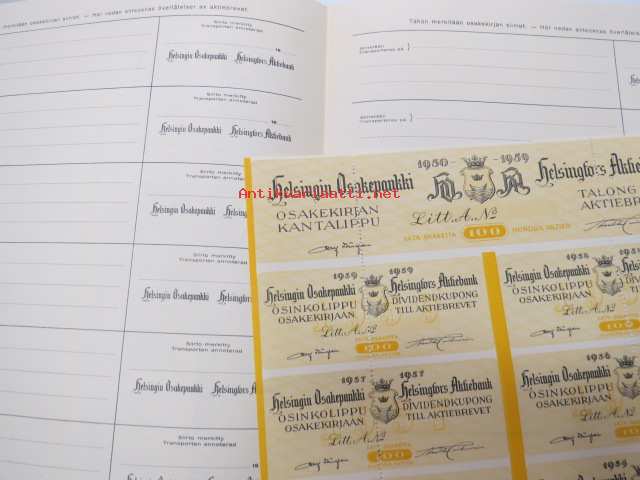 merkitään osakekirjan siirrot. — Här nedan antecknas överlåtelser av aktiebrevet.
Siirto merkitty
Transporten annoterad
19
Helsingin Osakepankki Helsingfors Aktiebank
Siirto merkitty
Transporten annoterad
19
Helsingin Osakepankki Helsingfors Aktiebank
Siirto merkitty
Transporten annoterad
Helsingin Osakepankki
Siirto merkitty
Transporten annoterad
Helsingin Osakepankki
Siirto merkitty
Transporten annoterad
Helsingin Osakepankki Helsingfors
Siirto merkitty
Transporten annoterad
Helsingin Osakepankki Helsingfors A
Siirto merkitty
Transporten annoterad
19
Tähän merkitään osakekirjan siirrot. — Här nedan antecknas överlåtelse
Siirretään
Transporteras på
Siirretään
Transporteras på
Antikvariaatti.net
1950- -1959
Helsingin Osakepankki Helsingfors Aktie
OSAKEKIRJAN KANTALIPPU
TALONG AKTIEBRE
Litt. A. No
SATA OSAKETTA 100 HUNDRA AKTIER
1959 1959
Helsingin Osakepankki Helsingfors Aktiebank
OSINKOLIPPU OSAKEKIRJAAN
DIVIDENDKUPONG TILL AKTIEBREVET
Litt. A. No
100
1958
Helsingin Osakepankki
OSINKOLIPPU
OSAKEKIRJAAN
Litt. A. No
1957 1957
Helsingin Osakepankki Helsingfors Aktiebank
OSINKOLIPPU OSAKEKIRJAAN
DIVIDENDKUPONG TILL AKTIEBREVET
Litt. A. No
100
1956
Helsingin Osakepankki
OSINKOLIPPU
OSAKEKIRJAAN
Litt. A. No